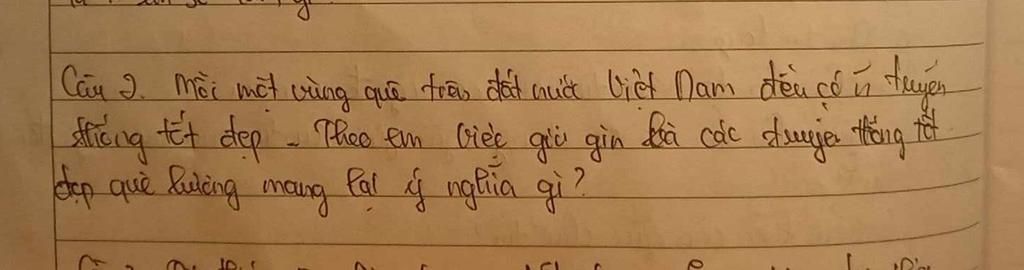 Câu 2. Mỗi một vùng quê trên đất nước Việt Nam đều có n truyền
thống tốt đẹp - Theo em việc giữ gìn là các truyền thống tốt
đẹp quê hương mang lại ý nghĩa gì?